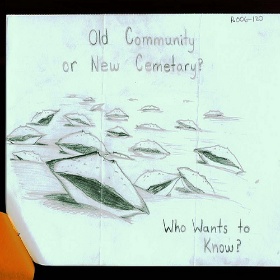 R006-120
Old Community
or New Cemetary?
Who Wants to
Know?